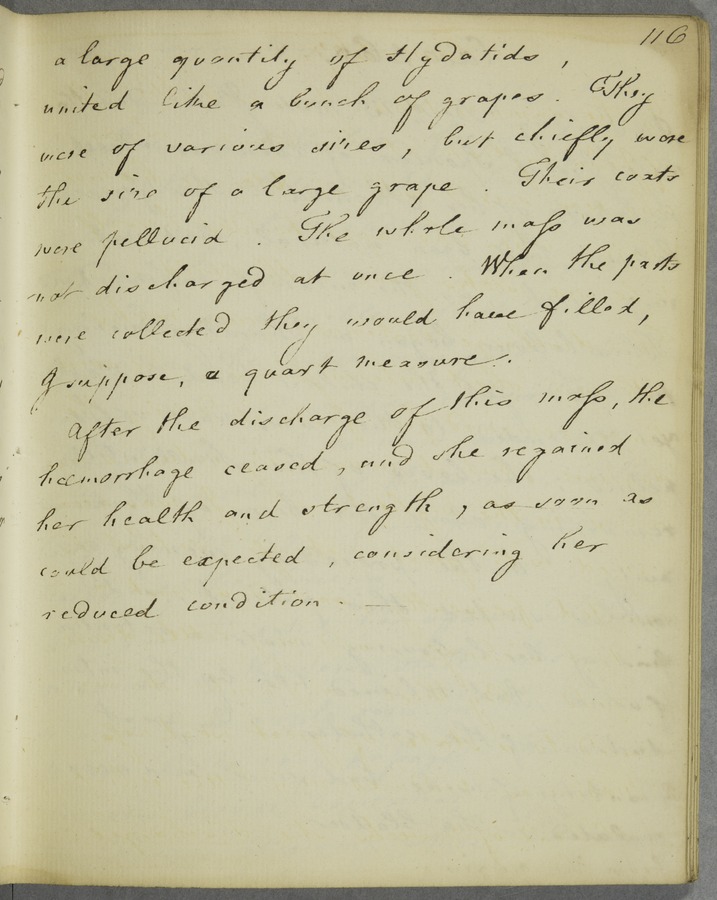 116
a large quantity of Hydatids,
united like a bunch of grapes. They
were of various sizes, but chiefly were
the size of a large grape. Their coats
were pellucid. The whole maſs was
not discharged at once. When the parts
were collected they would have filled,
I suppose, a quart measure.
After the discharge of this maſs, the
hæmorrhage ceased, and she regained
her health and strength, as soon as
could be expected, considering her
reduced condition. —